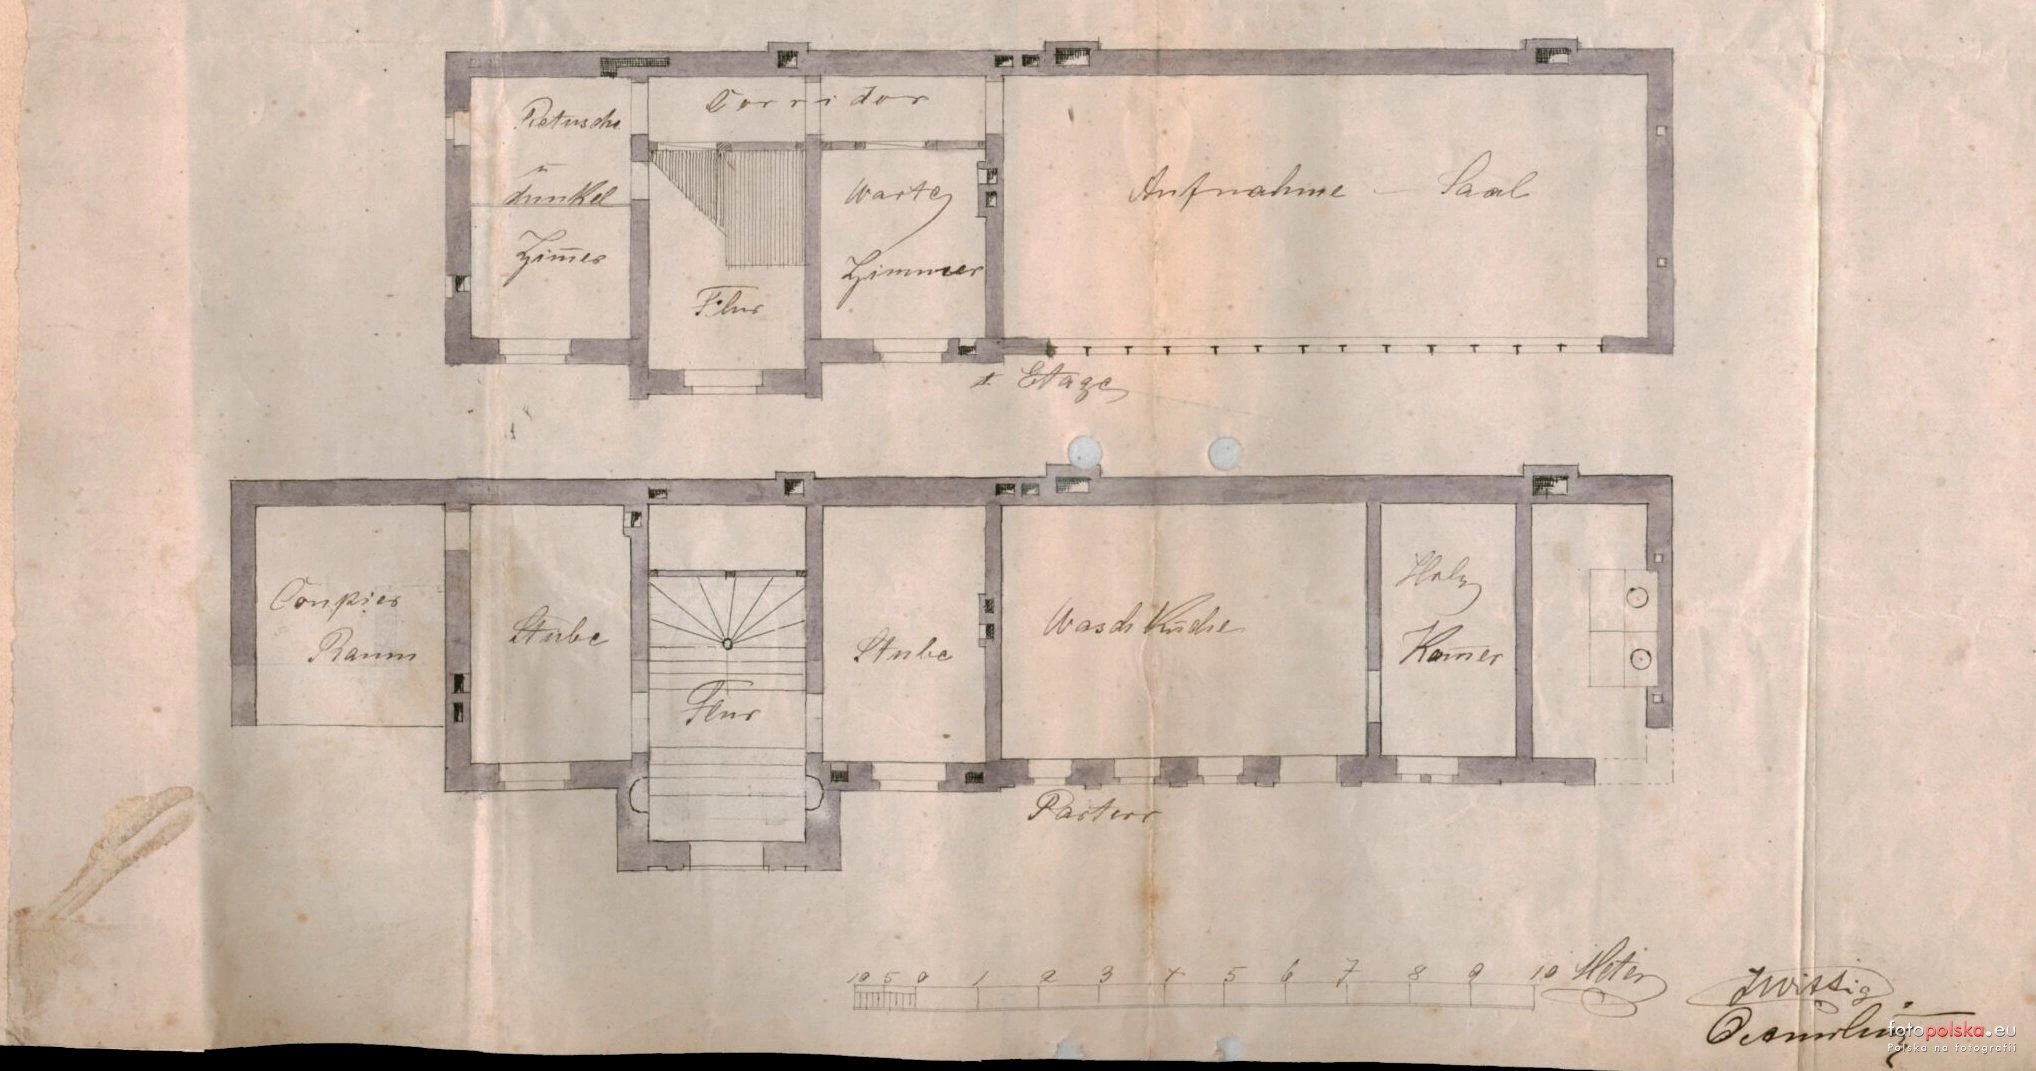 Corridor
Retusche
u
dunkel
Zim̄er
Warte
Zimmer
Aufnahme - Saal
Flur
I Etage
Coupier
Raum
Stube
Flur
Stube
Wasch Küche
Holz
Kam̄er
Parterr
10 5 0 1 2 3 4 5 6 7 8 9 10 Meter
Zwissig
fotopolska.eu
Polska na fotografii